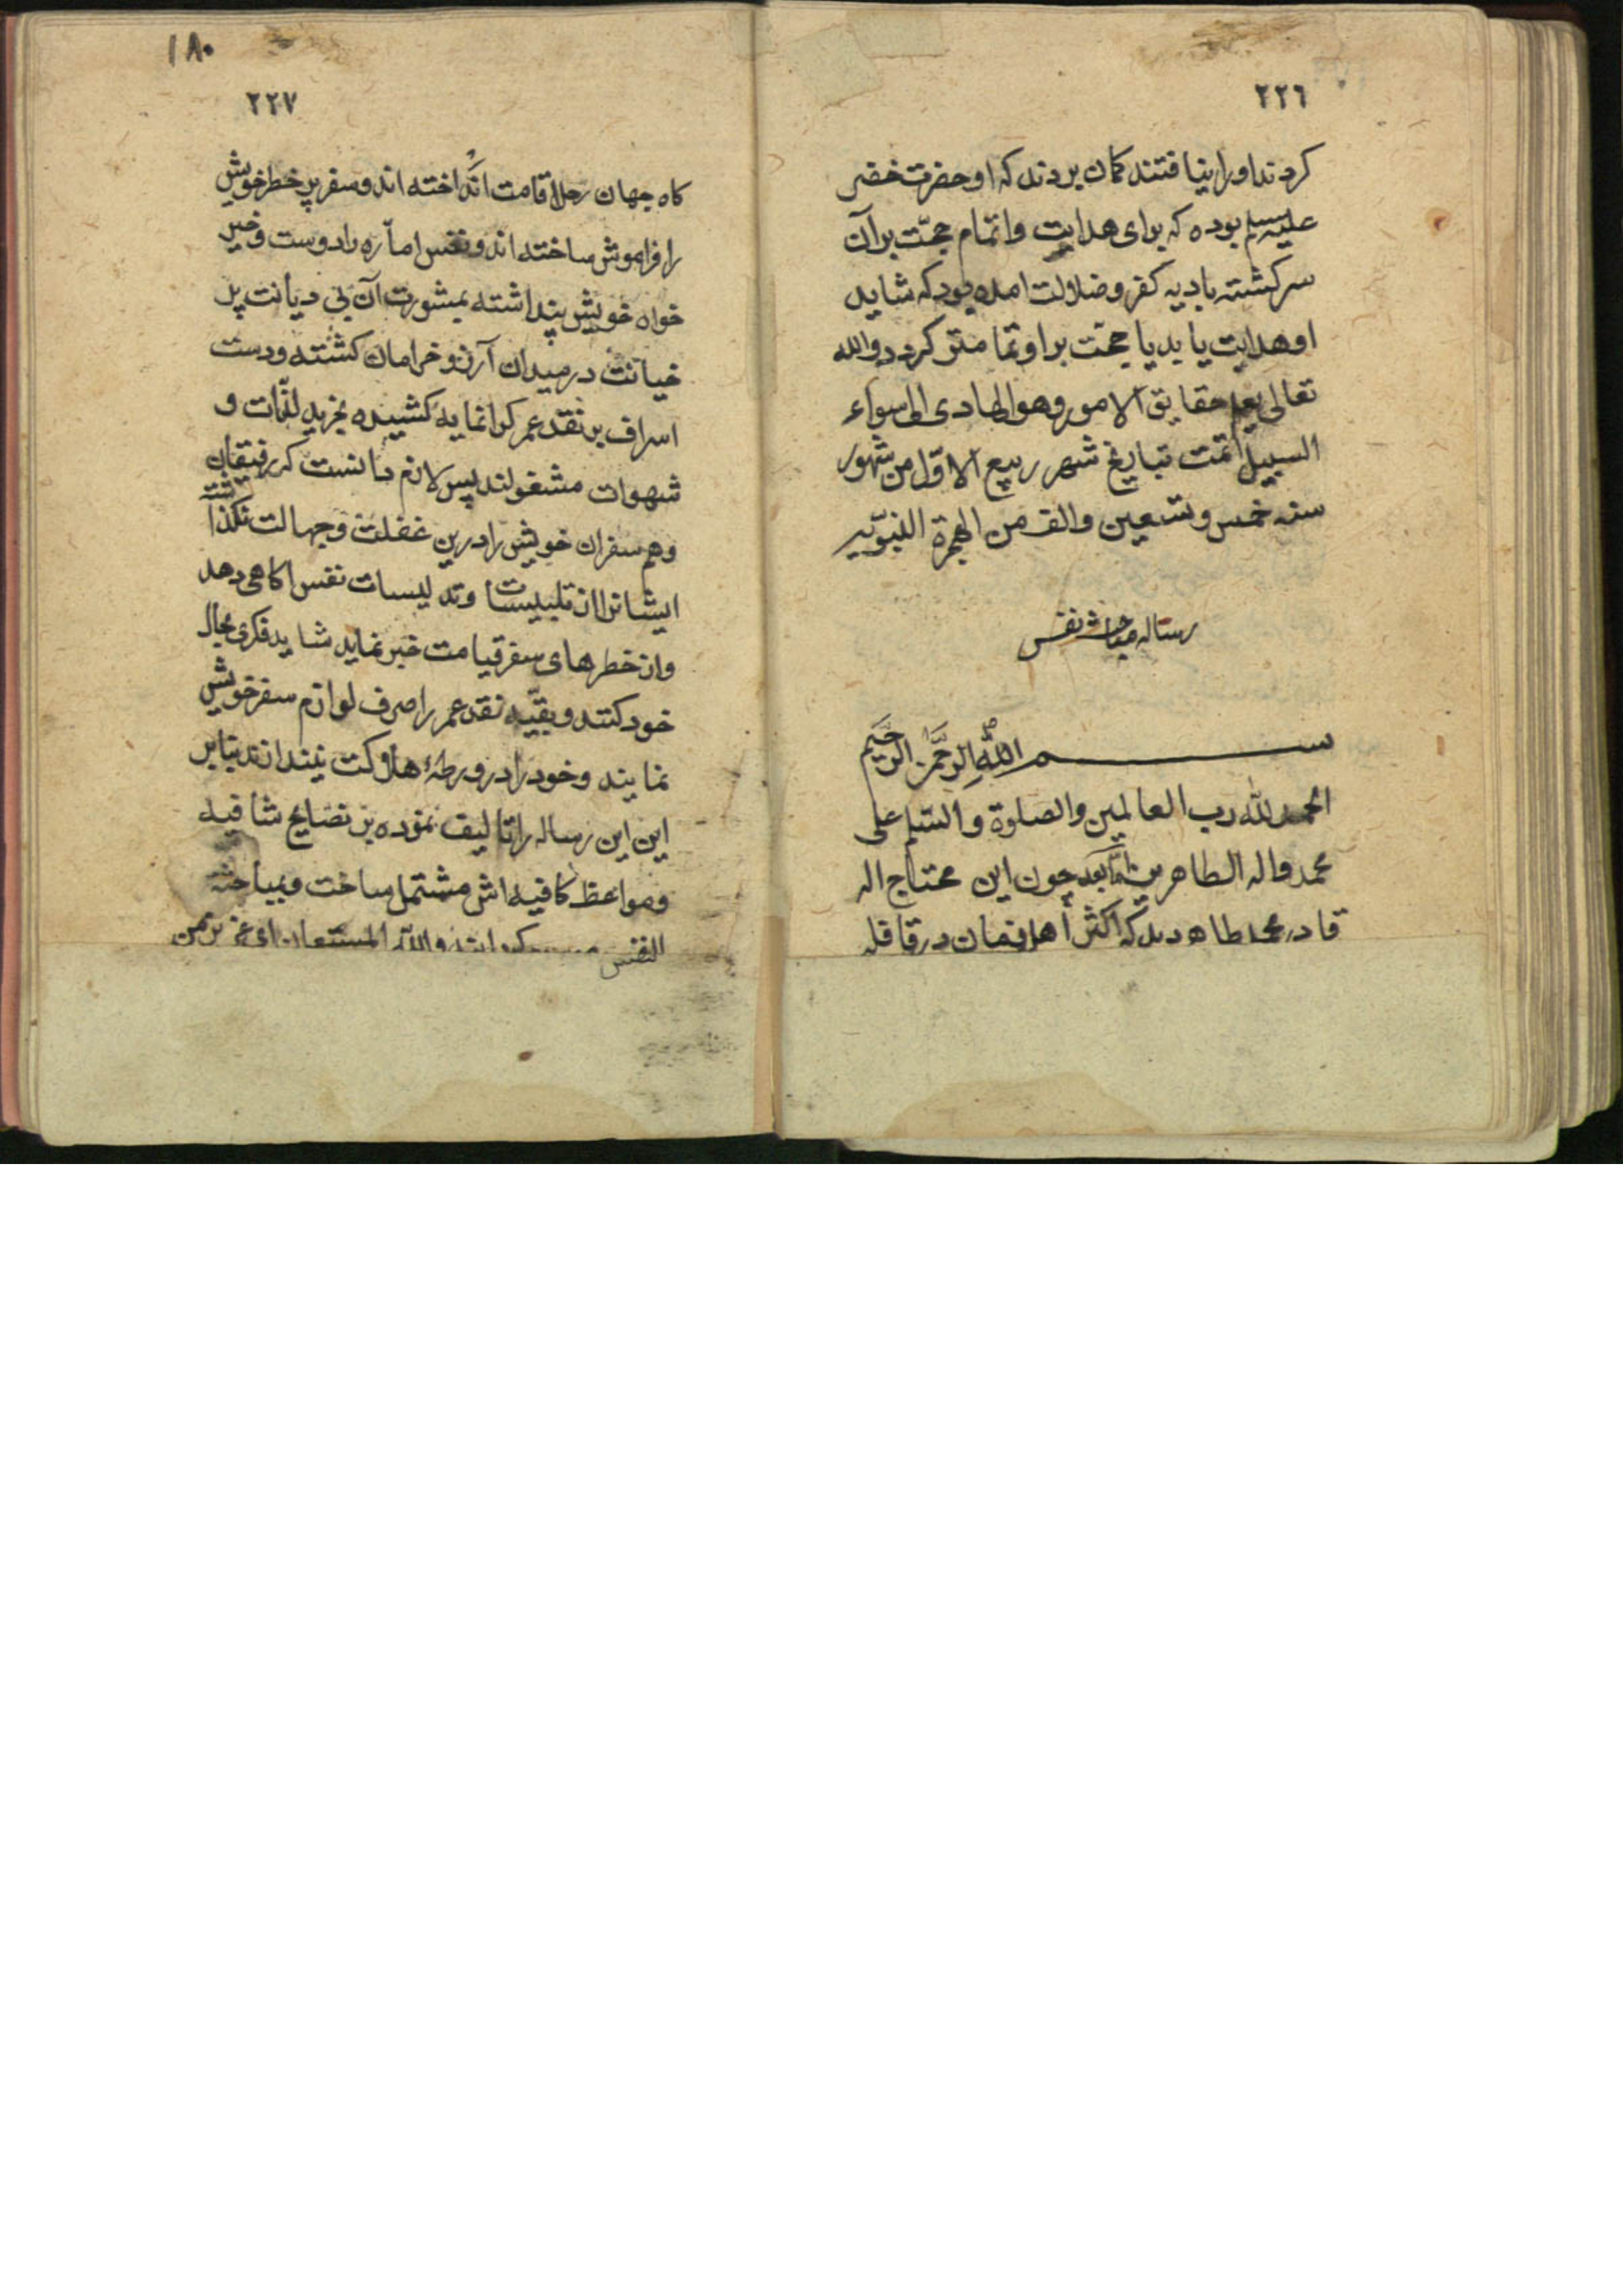 ٢٢٦
كردند او را نيافتند كمان بردند كه او حضرت خضر
عليه السلم بوده كه براى هدايت و اتمام حجّت بر آن
سركشته باديه كفر و ضلالت امده بود كه شايد
او هدايت يابد يا حجّت بر او تمامتر كردد و الله
تعالى يعلم حقايق الامور وهو الهادى الى سواء
السبيل تمت بتاريخ شهر ربيع الاوّل من شهور
سنه خمس و تسعين والف من الهجرة النبويّه
رساله مباحثه نفس
بسم الله الرحمن الرحيم
الحمد لله رب العالمين والصلوة والسلم على
محمد واله الطاهرين امّا بعد چون اين محتاج اله
قادر محمد طاهر ديد كه اكثر أهل زمان در قافله
١٨٠
٢٢٧
كاه جهان رحل اقامت انداخته اند و سفر پر خطر خويش
را فراموش ساخته اند و نفس امّاره را دوست و خير
خواه خويش پنداشته بمشورت آن بى ديانت پر
خيانت در ميدان آرزو خرامان كشته و دست
اسراف بر نقد عمر كرانمايه كشيده بخريد لذّات و
شهوات مشغولند پس لازم دانست كه رفيقان
و هم سفران خويش را درين غفلت و جهالت نكذاشته
ايشانرا از تلبيسات و تدليسات نفس اكاهى دهد
واز خطرهاى سفر قيامت خبر نمايد شايد فكرى بحال
خود كنند و بقيّه نقد عمر را صرف لوازم سفر خويش
نمايند و خود را در ورطهٔ هلاكت نيندازند بنابر
اين اين رساله را تاليف نموده بر نصايح شافيه
و مواعظ كافيه اش مشتمل ساخت و بمباحثه
النفس كردانيد والله المستعان اى عزيز من